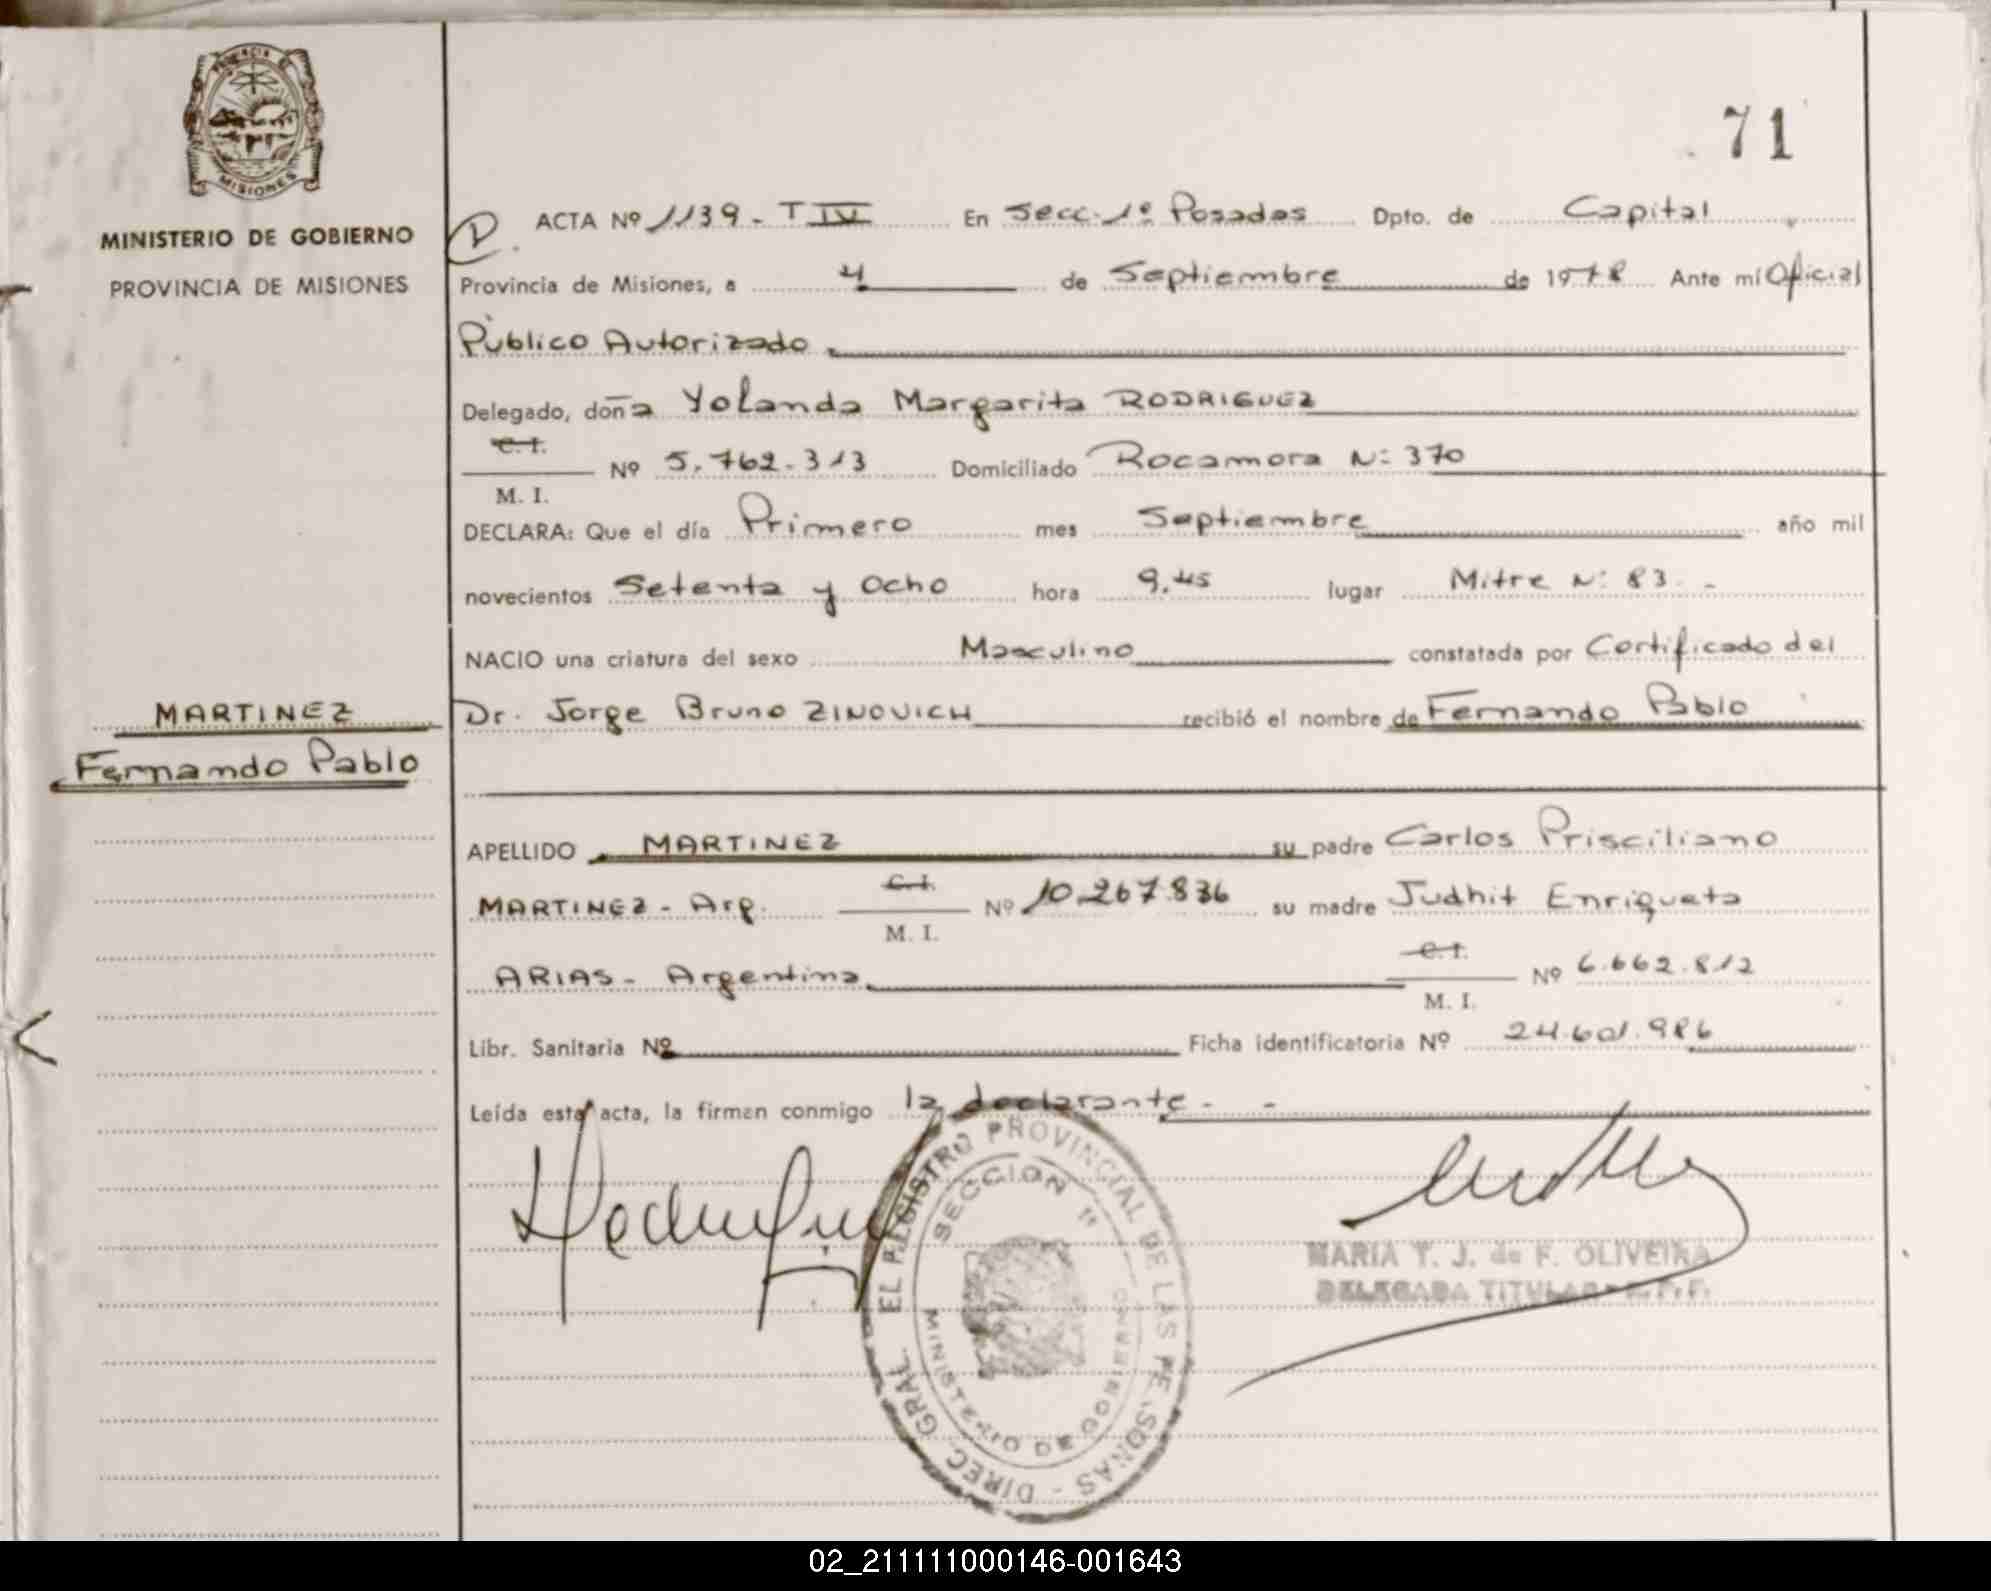 71
PROVINCIA DE
MISIONES
MINISTERIO DE GOBIERNO
PROVINCIA DE MISIONES
ACTA Nº 1139 - T IV En Secc. 1º Posadas Dpto. de Capital
Provincia de Misiones, a 4 de Septiembre de 1978 Ante mí Oficial
Público Autorizado
Delegado, doña Yolanda Margarita RODRIGUEZ
C. I.
M. I. Nº 5.762.313 Domiciliado Rocamora N: 370
DECLARA: Que el día Primero mes Septiembre año mil
novecientos Setenta y Ocho hora 9.45 lugar Mitre N: 83. -
NACIO una criatura del sexo Masculino constatada por Certificado del
Dr. Jorge Bruno ZINOVICH recibió el nombre de Fernando Pablo
MARTINEZ
Fernando Pablo
APELLIDO MARTINEZ su padre Carlos Prisciliano
MARTINEZ - Arg. C. I. M. I. Nº 10.267.836 su madre Judhit Enriqueta
ARIAS - Argentina C. I. M. I. Nº 6.662.812
Libr. Sanitaria Nº Ficha identificatoria Nº 24.601.986
Leída esta acta, la firman conmigo la declarante - -
DIREC. GRAL. EL REGISTRO PROVINCIAL DE LAS PERSONAS -
SECCION 1ª
MINISTERIO DE GOBIERNO
MARIA T. J. de F. OLIVEIRA
DELEGADA TITULAR
02_211111000146-001643